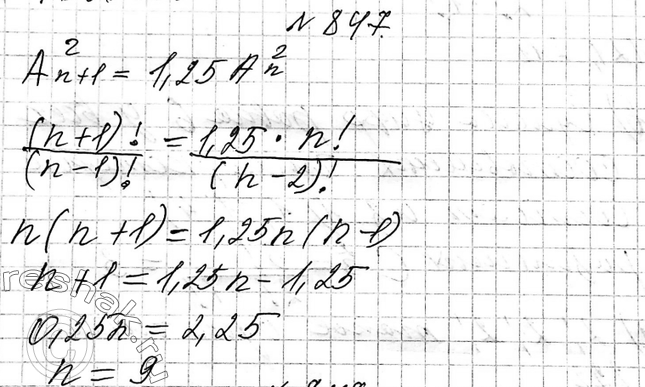 № 847
A²ₙ₊₁ = 1,25 A²ₙ
(n+1)!/(n-1)! = 1,25 · n!/(n-2)!
n(n+1) = 1,25n(n-1)
n+1 = 1,25n - 1,25
0,25n = 2,25
n = 9
reshak.ru